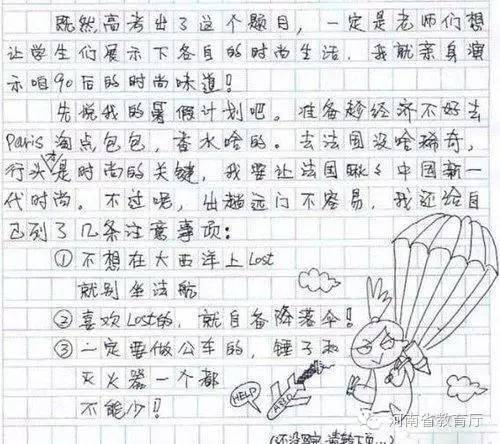 既然高考出了这个题目，一定是老师们想
让学生们展示下各自的时尚生活，我就亲身演
示咱90后的时尚味道！
先说我的暑假计划吧。准备趁经济不好去
Paris淘点包包，香水啥的。去法国没啥稀奇，
行头才是时尚的关键，我要让法国瞅瞅中国新一
代时尚。不过呢，出趟远门不容易，我还给自
己列了几条注意事项：
①不想在大西洋上Lost
就别坐法航
②喜欢Lost的，就自备降落伞！
③一定要做公车的，锤子和
灭火器一个都
不能少！！
HELP
河南省教育厅
(还没写完，请翻下页...)